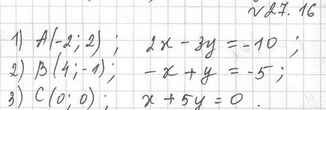 № 27. 16
1) A(-2; 2) ; 2x - 3y = -10 ;
2) B(4; -1) ; -x + y = -5 ;
3) C(0; 0) ; x + 5y = 0 .